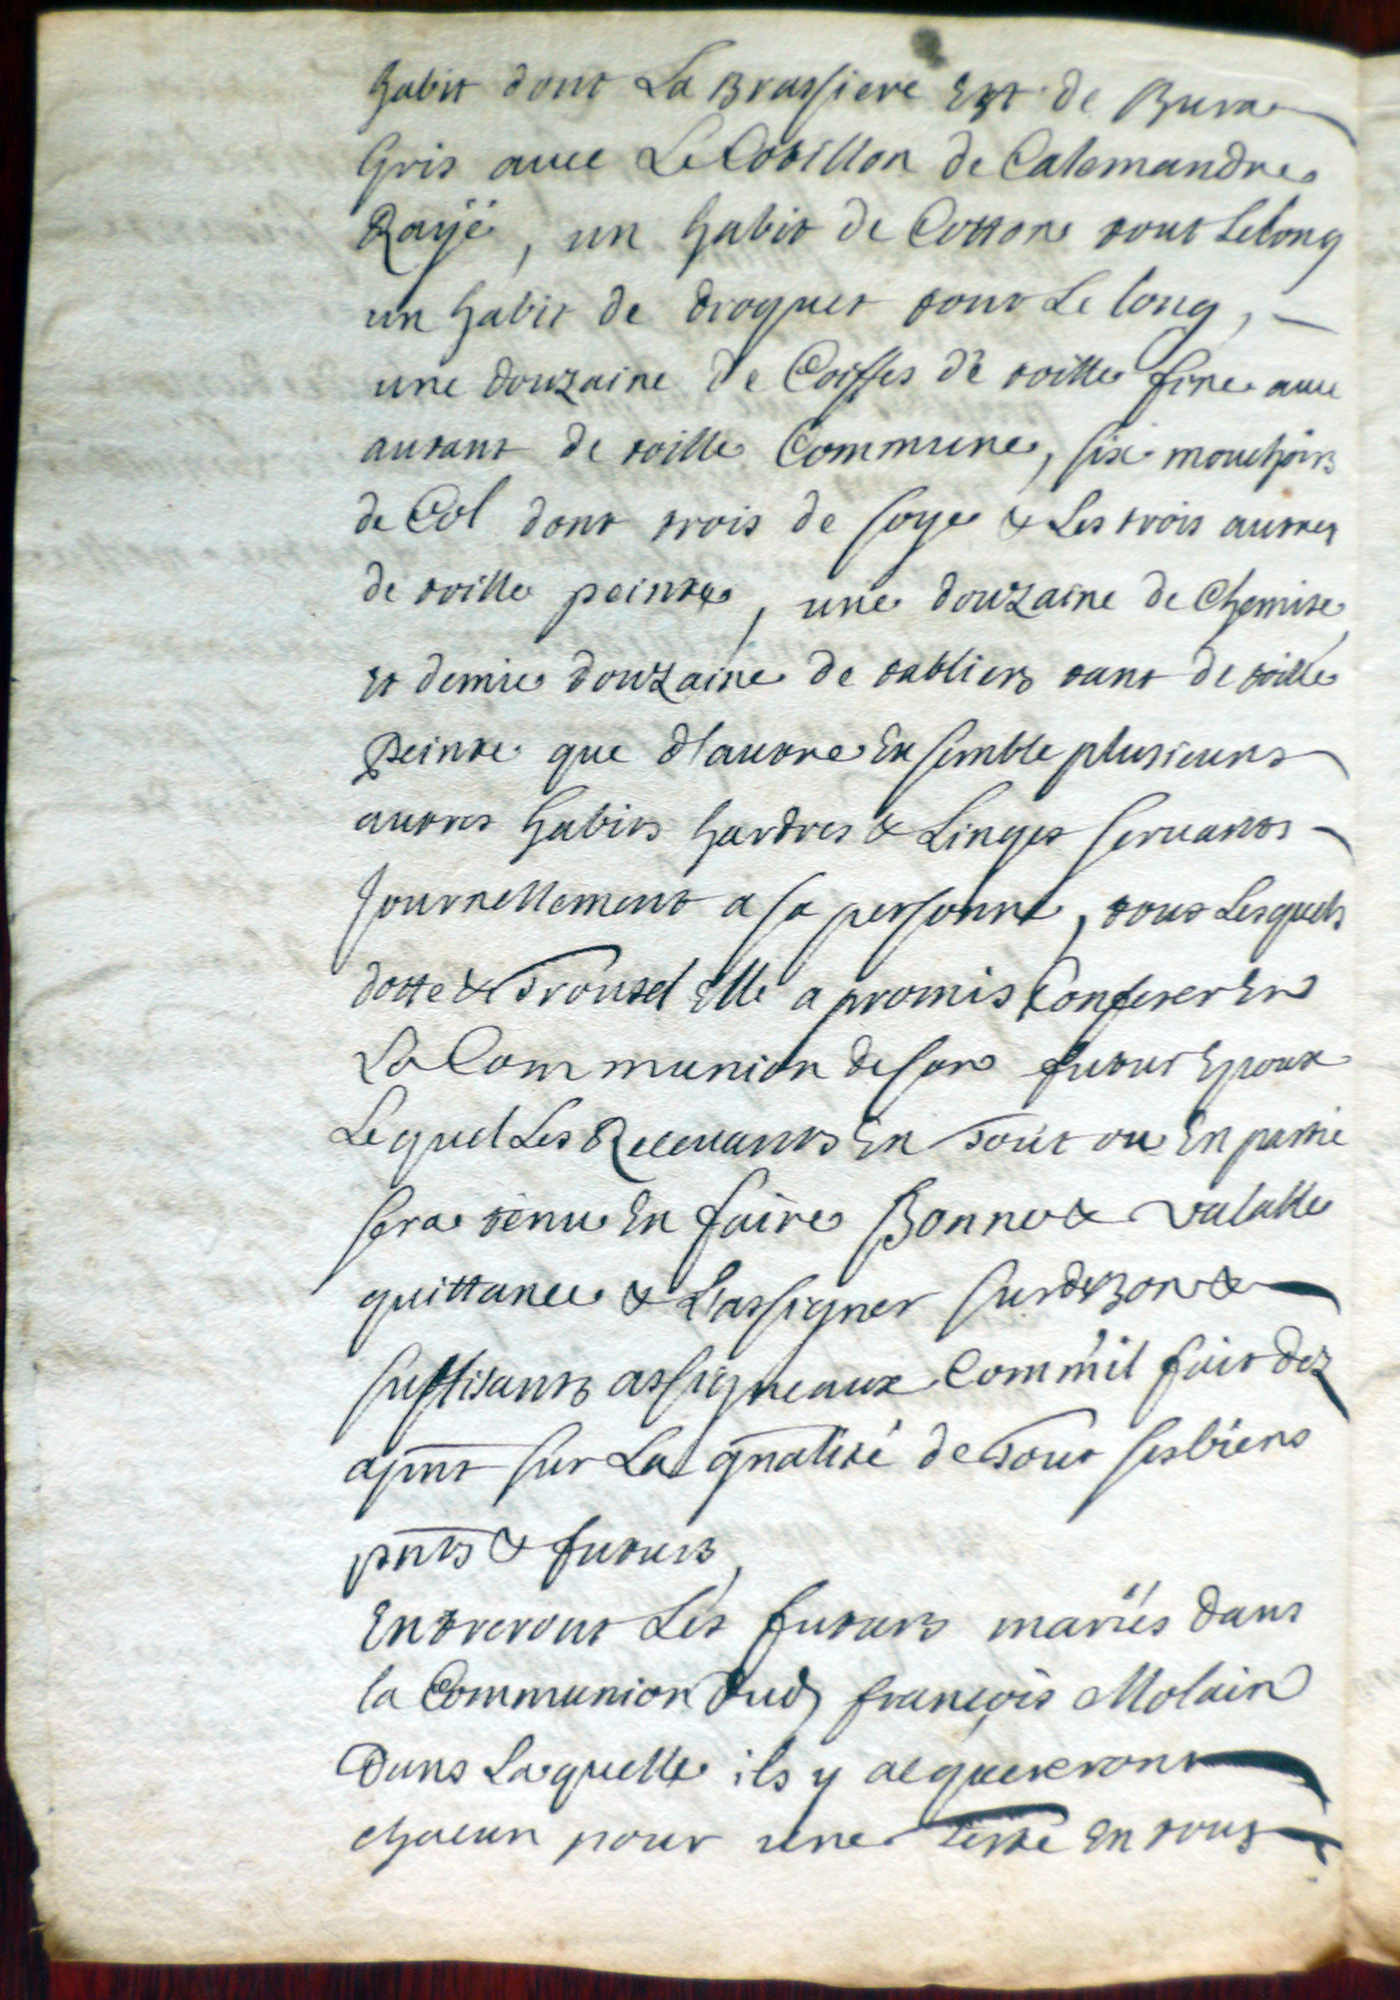 habit dont La Brassiere Est de Bura
Gris avec Le Cotillon de Calemandre
Rayé, un habit de Cotton tout Le long
un habit de droguet tout Le long,
une douzaine de Coiffes de toille fine avec
autant de toille Commune, six mouchoirs
de Col dont trois de soye & Les trois autres
de toille peinte, une douzaine de Chemise,
et demie douzaine de tabliers tant de toille
Peinte que d'autre Ensemble plusieurs
autres habits hardres & Linges servants
Journellement a sa personne, tous Lesquels
dotte & Trousel Elle a promis Conferer En
La Communion de son futur Epoux
Lequel Les Recevants En tout ou En partie
sera tenu En faire Bonne & valable
quittance & L'assigner sur & Bon &
suffisants assigneaux Comm'il fait dez
apnt sur La gnalité de tout ses biens
pnts & futurs,
Entreront Les futurs mariés dans
la Communion dud françois Molain
Dans Laquelle ils y acquereront
chacun pour une Teste En tous